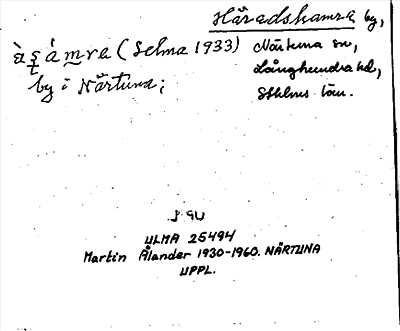 Häradshamra by,
àsámra (Selma 1933) Närtuna sn,
by i Närtuna; Långhundra hd,
Sthlms län.
ULMA 25494
Martin Ålander 1930-1960. NÄRTUNA
UPPL.